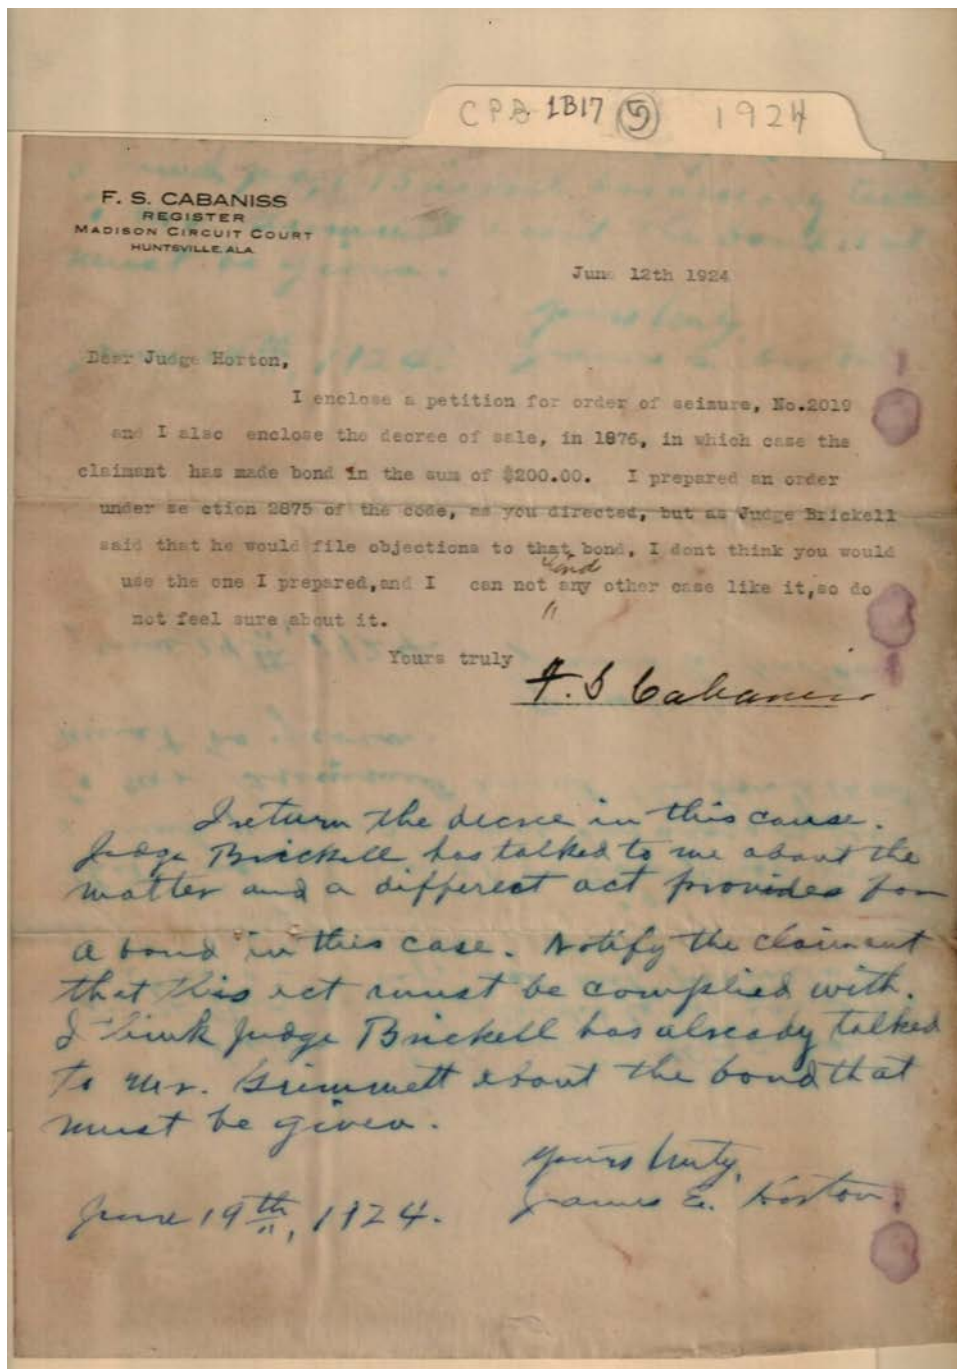 CPB 1B17 5 1924
F. S. CABANISS
REGISTER
MADISON CIRCUIT COURT
HUNTSVILLE, ALA.
June 12th 1924
Dear Judge Horton,
I enclose a petition for order of seizure, No.2019
and I also enclose the decree of sale, in 1876, in which case the
claimant has made bond in the sum of $200.00. I prepared an order
under se ction 2875 of the code, as you directed, but as Judge Brickell
said that he would file objections to that bond, I dont think you would
find
use the one I prepared,and I can not any other case like it,so do
not feel sure about it.
Yours truly
F. S Cabaniss
I return the decree in this cause.
Judge Brickell has talked to me about the
matter and a different act provides for
a bond in this case. Notify the claimant
that this act must be complied with.
I think Judge Brickell has already talked
to Mr. Grimmett about the bond that
must be given.
Yours truly,
James E. Horton.
June 19th, 1924.